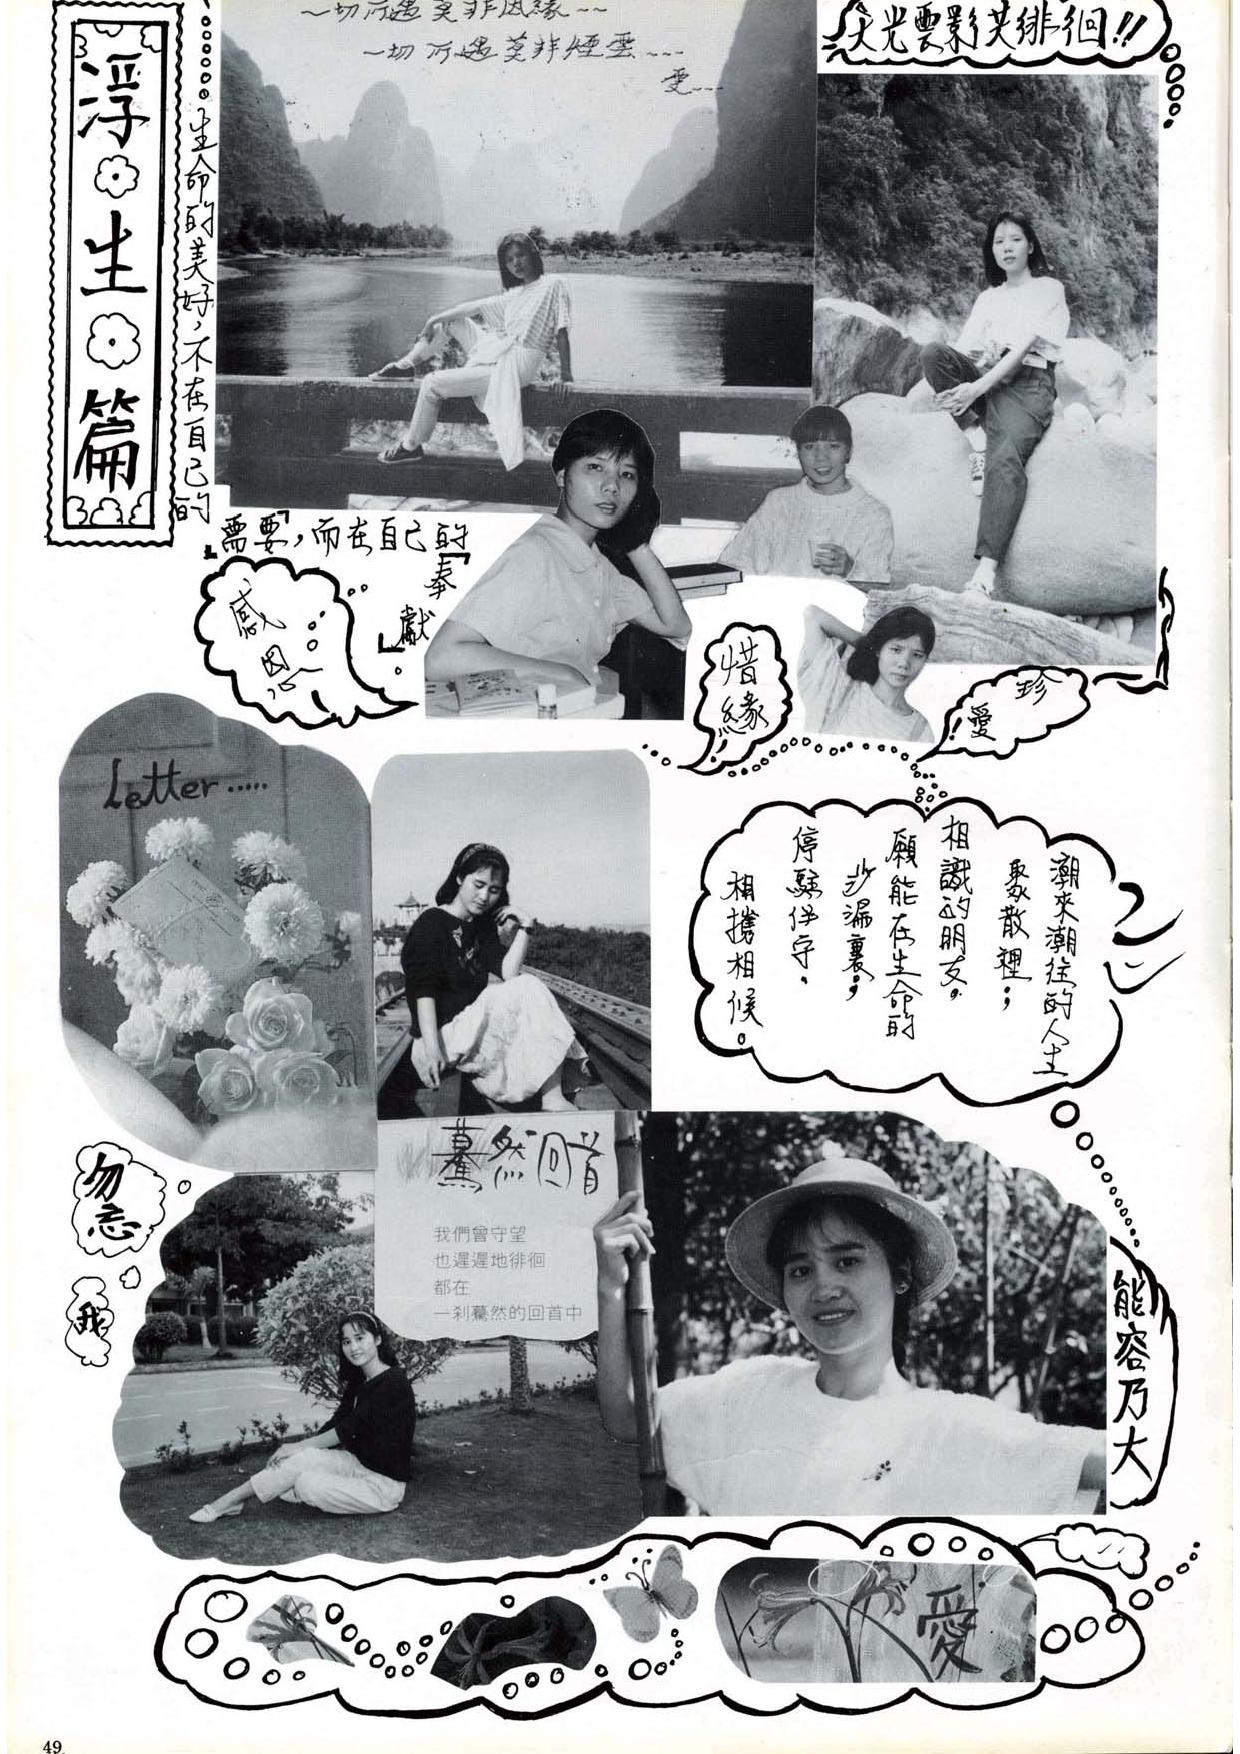 浮生篇
一切所遇莫非因緣
一切所遇莫非煙雲
愛
天光雲影共徘徊!!
生命的美好,不在自己的
「需要」,而在自己的
「奉獻」。
感恩
惜緣
珍愛
Letter.....
潮來潮往的人生
聚散裡;
相識的朋友。
願能在生命的
沙漏裏;
停駐伴守、
相攜相候。
驀然回首
我們曾守望
也遲遲地徘徊
都在
一剎驀然的回首中
勿忘
我
能容乃大
愛
49.